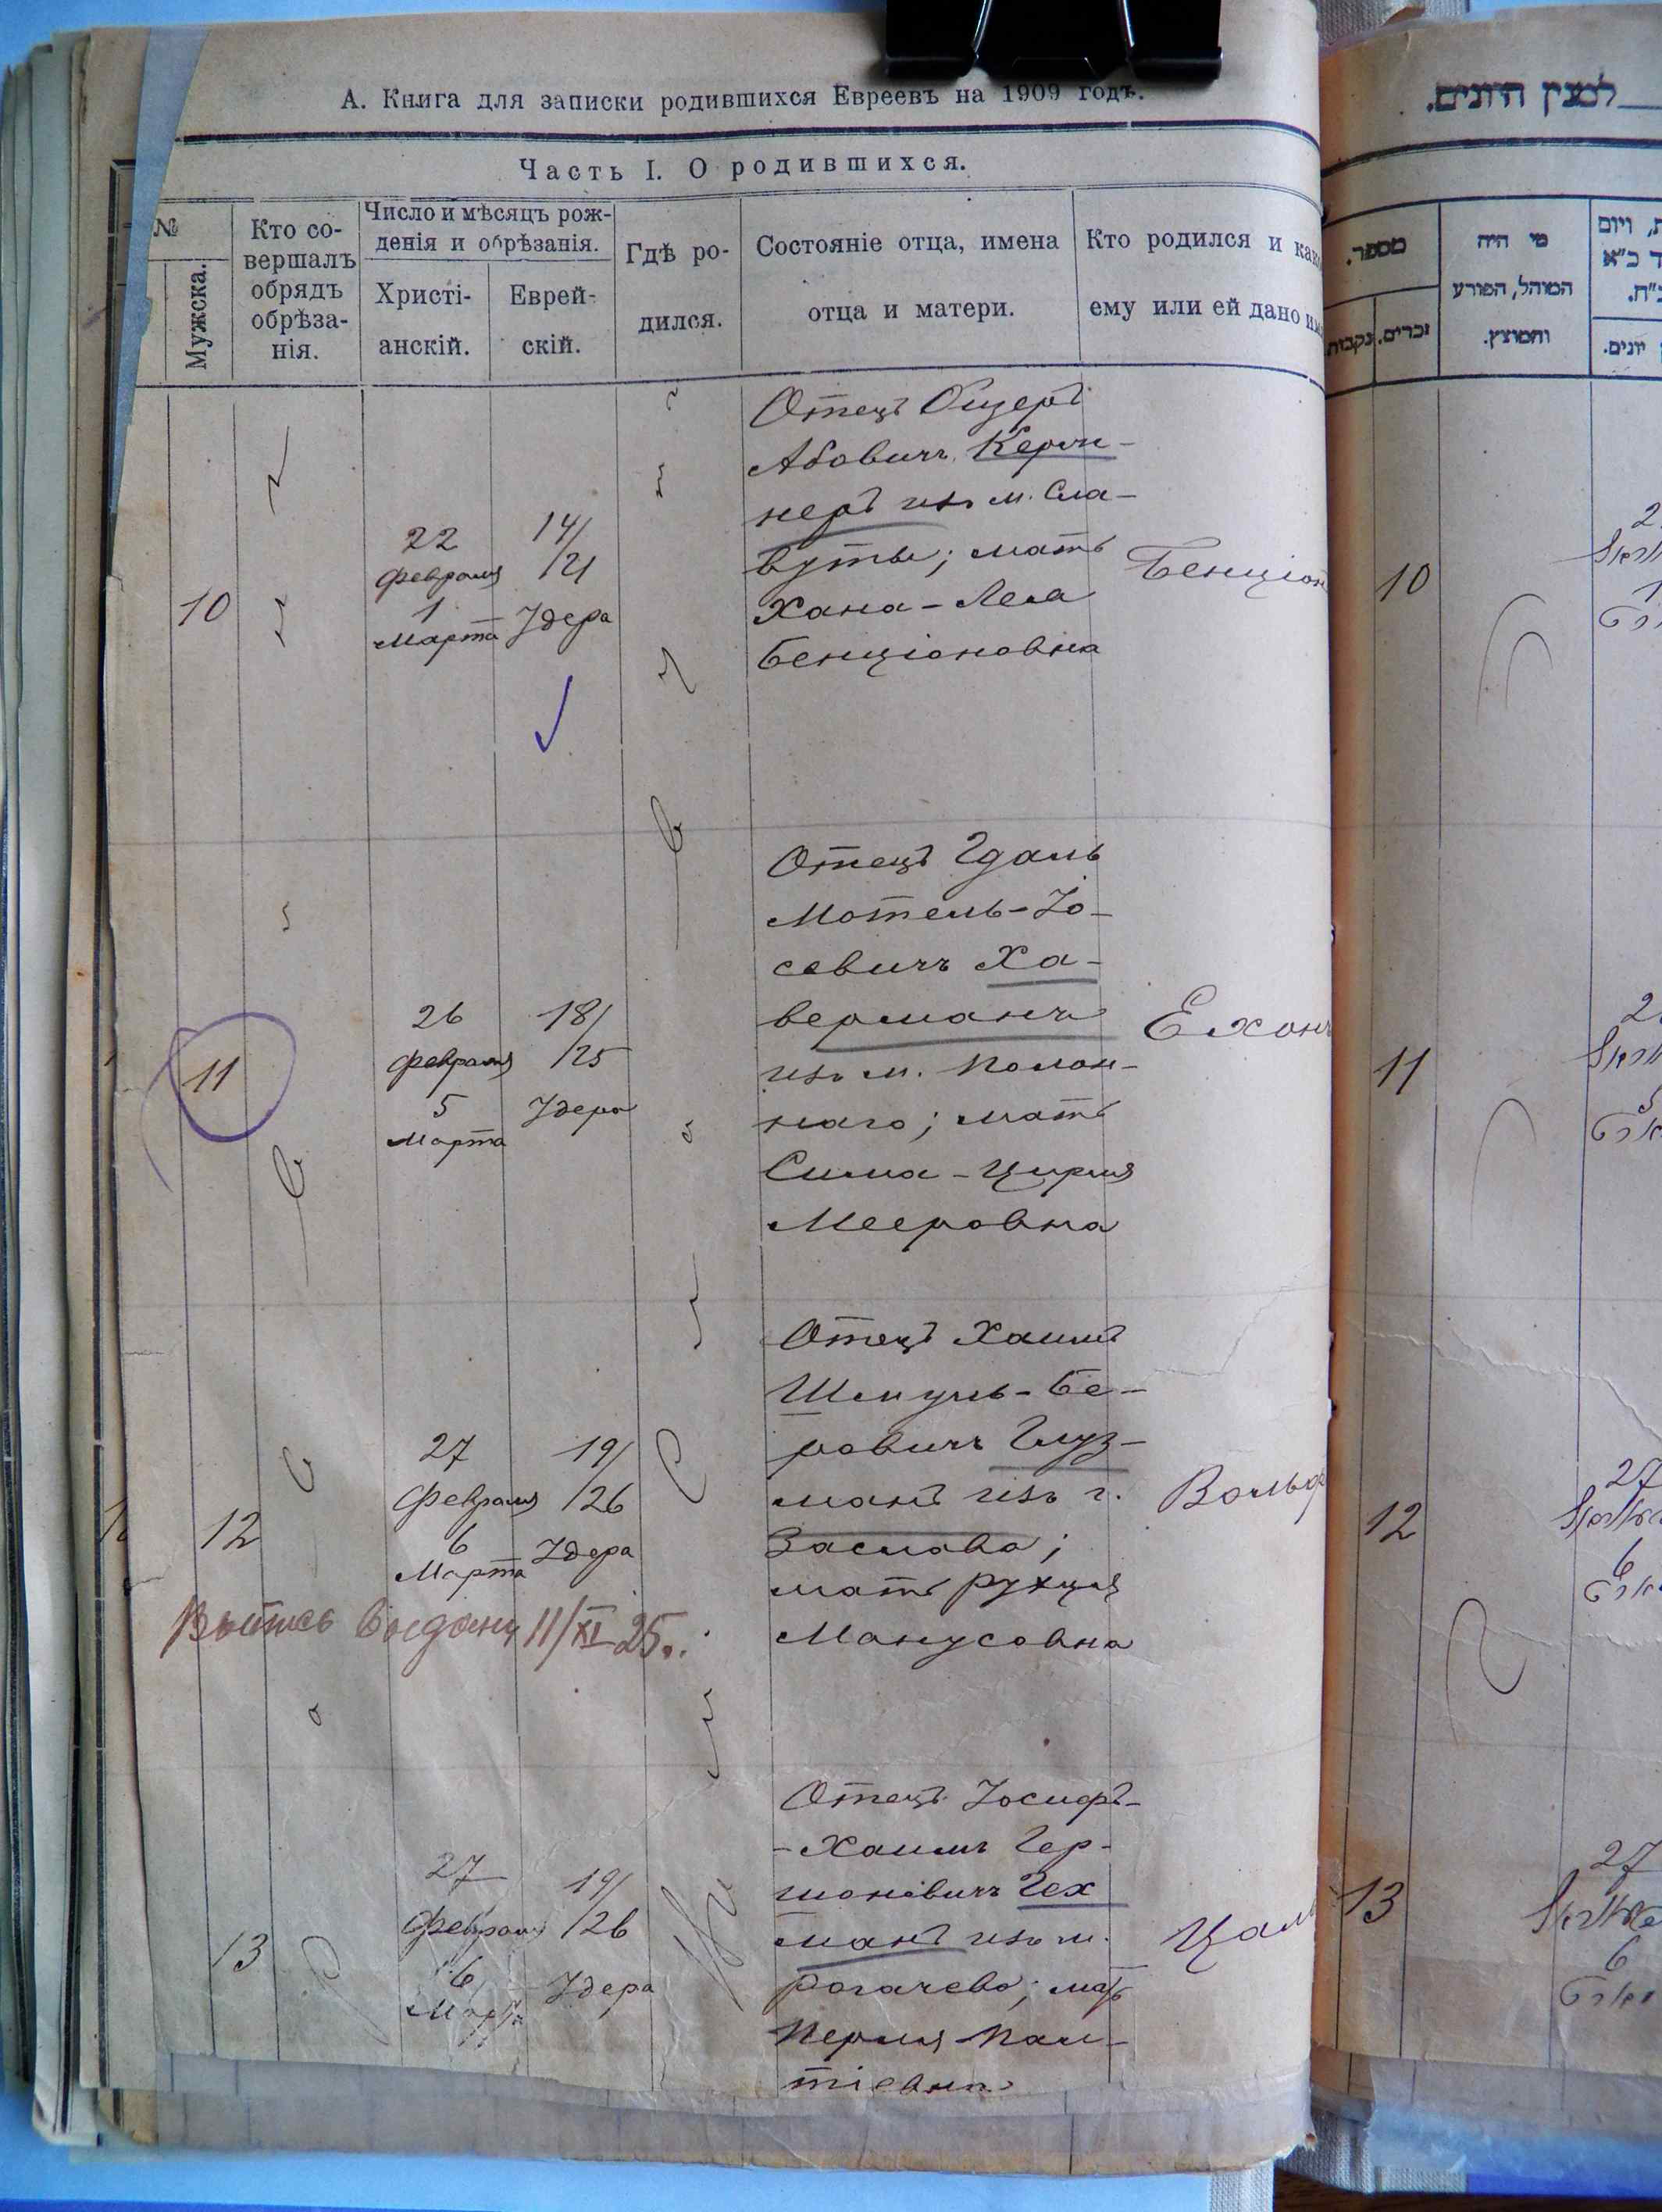 А. Книга для записки родившихся Евреевъ на 1909 годъ.
Часть I. О родившихся.
№
Мужска.
Кто со-
вершалъ
обрядъ
обрѣза-
нія.
Число и мѣсяцъ рож-
денія и обрѣзанія.
Христі-
анскій.
Еврей-
скій.
Гдѣ ро-
дился.
Состояніе отца, имена
отца и матери.
Кто родился и как
ему или ей дано им
10
22
февраля
1
Марта
14/
/21
Адера
Отецъ Ойзеръ
Абовичъ Керши-
неръ изъ м. Сла-
вуты; мать
Хана-Леа
Бенціоновна
Бенціон
11
26
февраля
5
Марта
18/
/25
Адера
Отецъ Гдаль
Мотель-Іо-
севичъ Ха-
верманъ
изъ м. Полон-
наго; мать
Сима-Цирля
Мееровна
Елхон
12
27
февраля
6
Марта
19/
/26
Адера
Отецъ Хаимъ
Шмуль-Бе-
ровичъ Глуз-
манъ изъ г.
Заслава;
мать Рухля
Манусовна
Вольф
Выпись выдана 11/XI 25.
13
27
февраля
6
Марта
19/
/26
Адера
Отецъ Іосифъ-
-Хаимъ Гер-
шоновичъ Гех
манъ изъ м.
Рогачева; мать
Перля Пал-
тіевна
Цал
למנין היונים.
מספר.
זכרים.
נקבות.
מי היה
המוהל, הפורע
והמוצץ.
יונים.
10
11
12
27
6
13
27
6